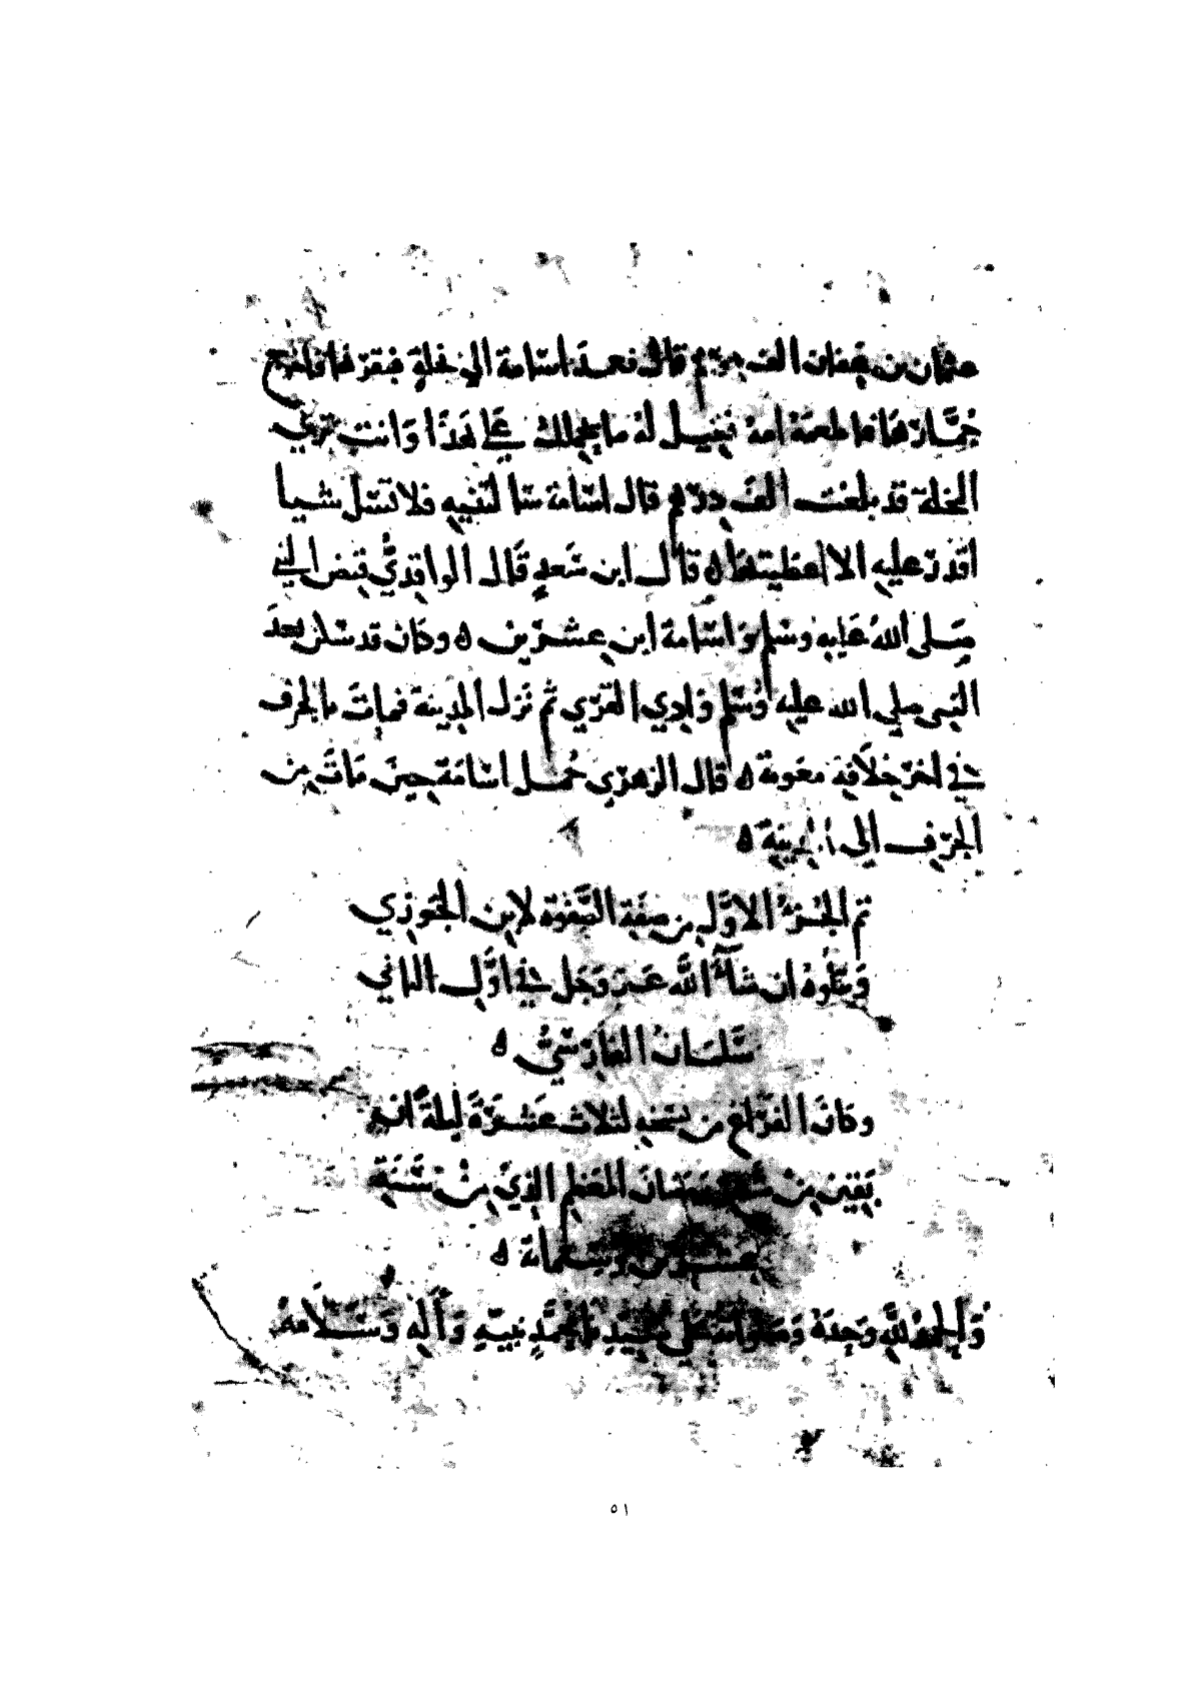 عثمان بن عفان الف درهم قال فعمد اسامة الي نخلة فنقرها فاخرج
جُمَّارَهَا فاطعمه امه فقيل له ما يحملك علي هَذَا وَانت تري
النخلة قد بلغت الف درهم قال اسامة لا تسل شيا
اقدر عليه الا اعطيتها ٥ قال ابن سَعد قَال الواقديُّ قبض النبي
صَلى اللهُ عَليه وسلم واسَامة ابن عشرين ٥ وكان قد سكن بعدَ
النبي صلي الله عليه وسلم وَادي القري ثم نَزل المدينة فماتَ بالجرف
في اخر خلَافة معوية ٥ قال الزهري حُمل اسَامَة حينَ مَاتَ من
الجرف الي المدينة ٥
تم الجُزءُ الاوَّل من صفَة الصَّفوة لابن الجَوزي
وَيتلُوهُ ان شآءَ اللَّه عَز وَجَل في اوَّل الثاني
سَلمَانُ الفَارسيُّ ٥
وكانَ الفَرَاغ من نسخه لثلاث عَشرَةَ ليلةً
بَقين مِنْ شهر رمضان المعَظم الذي مِنْ سَنَة
عشرين وستمائة ٥
وَالحمدُ للَّهِ وَحدَهُ وَصلواتهُ عَلَى محمَّدٍ نبيّهِ وَآلهِ وَسَلَامهُ
٥١